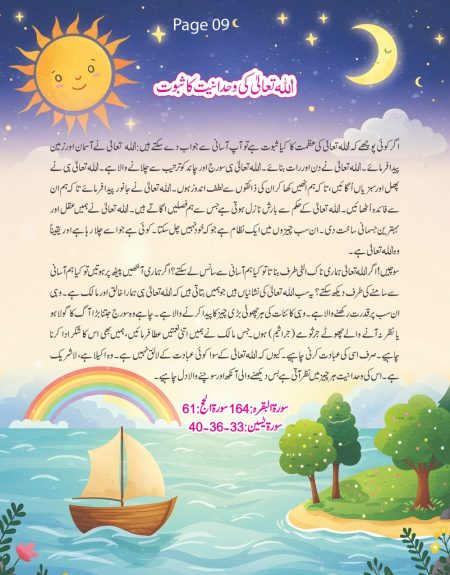 Page 09
اللہ تعالیٰ کی وحدانیت کا ثبوت
اگر کوئی پوچھے کہ اللہ تعالیٰ کی عظمت کا کیا ثبوت ہے تو آپ آسانی سے جواب دے سکتے ہیں: اللہ تعالیٰ نے آسمان اور زمین
پیدا فرمائے۔ اللہ تعالیٰ نے دن اور رات بنائے۔ اللہ تعالیٰ ہی سورج اور چاند کو ترتیب سے چلانے والا ہے۔ اللہ تعالیٰ ہی نے
پھل اور سبزیاں اُگائیں، تاکہ ہم انھیں کھا کر ان کی ذائقوں سے لطف اندوز ہوں۔ اللہ تعالیٰ نے جانور پیدا فرمائے تاکہ ہم ان
سے فائدہ اُٹھائیں۔ اللہ تعالیٰ کے حکم سے بارش نازل ہوتی ہے جس سے ہم فصلیں اگاتے ہیں۔ اللہ تعالیٰ نے ہمیں عقل اور
بہترین جسمانی ساخت دی۔ ان سب چیزوں میں ایک نظام ہے جو کہ خود نہیں چل سکتا۔ کوئی ہے جو اسے چلا رہا ہے اور یقیناً
وہ اللہ تعالیٰ ہے۔
سوچیں! اگر اللہ تعالیٰ ہماری ناک الٹی طرف بناتا تو کیا ہم آسانی سے سانس لے سکتے؟ اگر ہماری آنکھیں پیٹھ پر ہوتیں تو کیا ہم آسانی
سے سامنے کی طرف دیکھ سکتے؟ یہ سب اللہ تعالیٰ کی نشانیاں ہیں جو ہمیں بتاتی ہیں کہ اللہ تعالیٰ ہی ہمارا خالق اور مالک ہے۔ وہی
ان سب پر قدرت رکھنے والا ہے۔ وہی کائنات کی ہر چھوٹی بڑی چیز کا پیدا کرنے والا ہے۔ چاہے وہ سورج جتنا بڑا آگ کا گولا ہو
یا نظر نہ آنے والے چھوٹے جرثومے (جراثیم) ہوں۔ جس مالک نے ہمیں اتنی نعمتیں عطا فرمائیں، ہمیں بھی اس کا شکر ادا کرنا
چاہیے۔ صرف اسی کی عبادت کرنی چاہیے۔ کیوں کہ اللہ تعالیٰ کے سوا کوئی عبادت کے لائق نہیں ہے۔ وہ اکیلا ہے، لاشریک
ہے۔ اس کی وحدانیت ہر چیز میں نظر آتی ہے بس دیکھنے والی آنکھ اور سوچنے والا دل چاہیے۔
سورۃ البقرہ:164 سورۃ الحج:61
سورۃ یٰسین:33-36-40